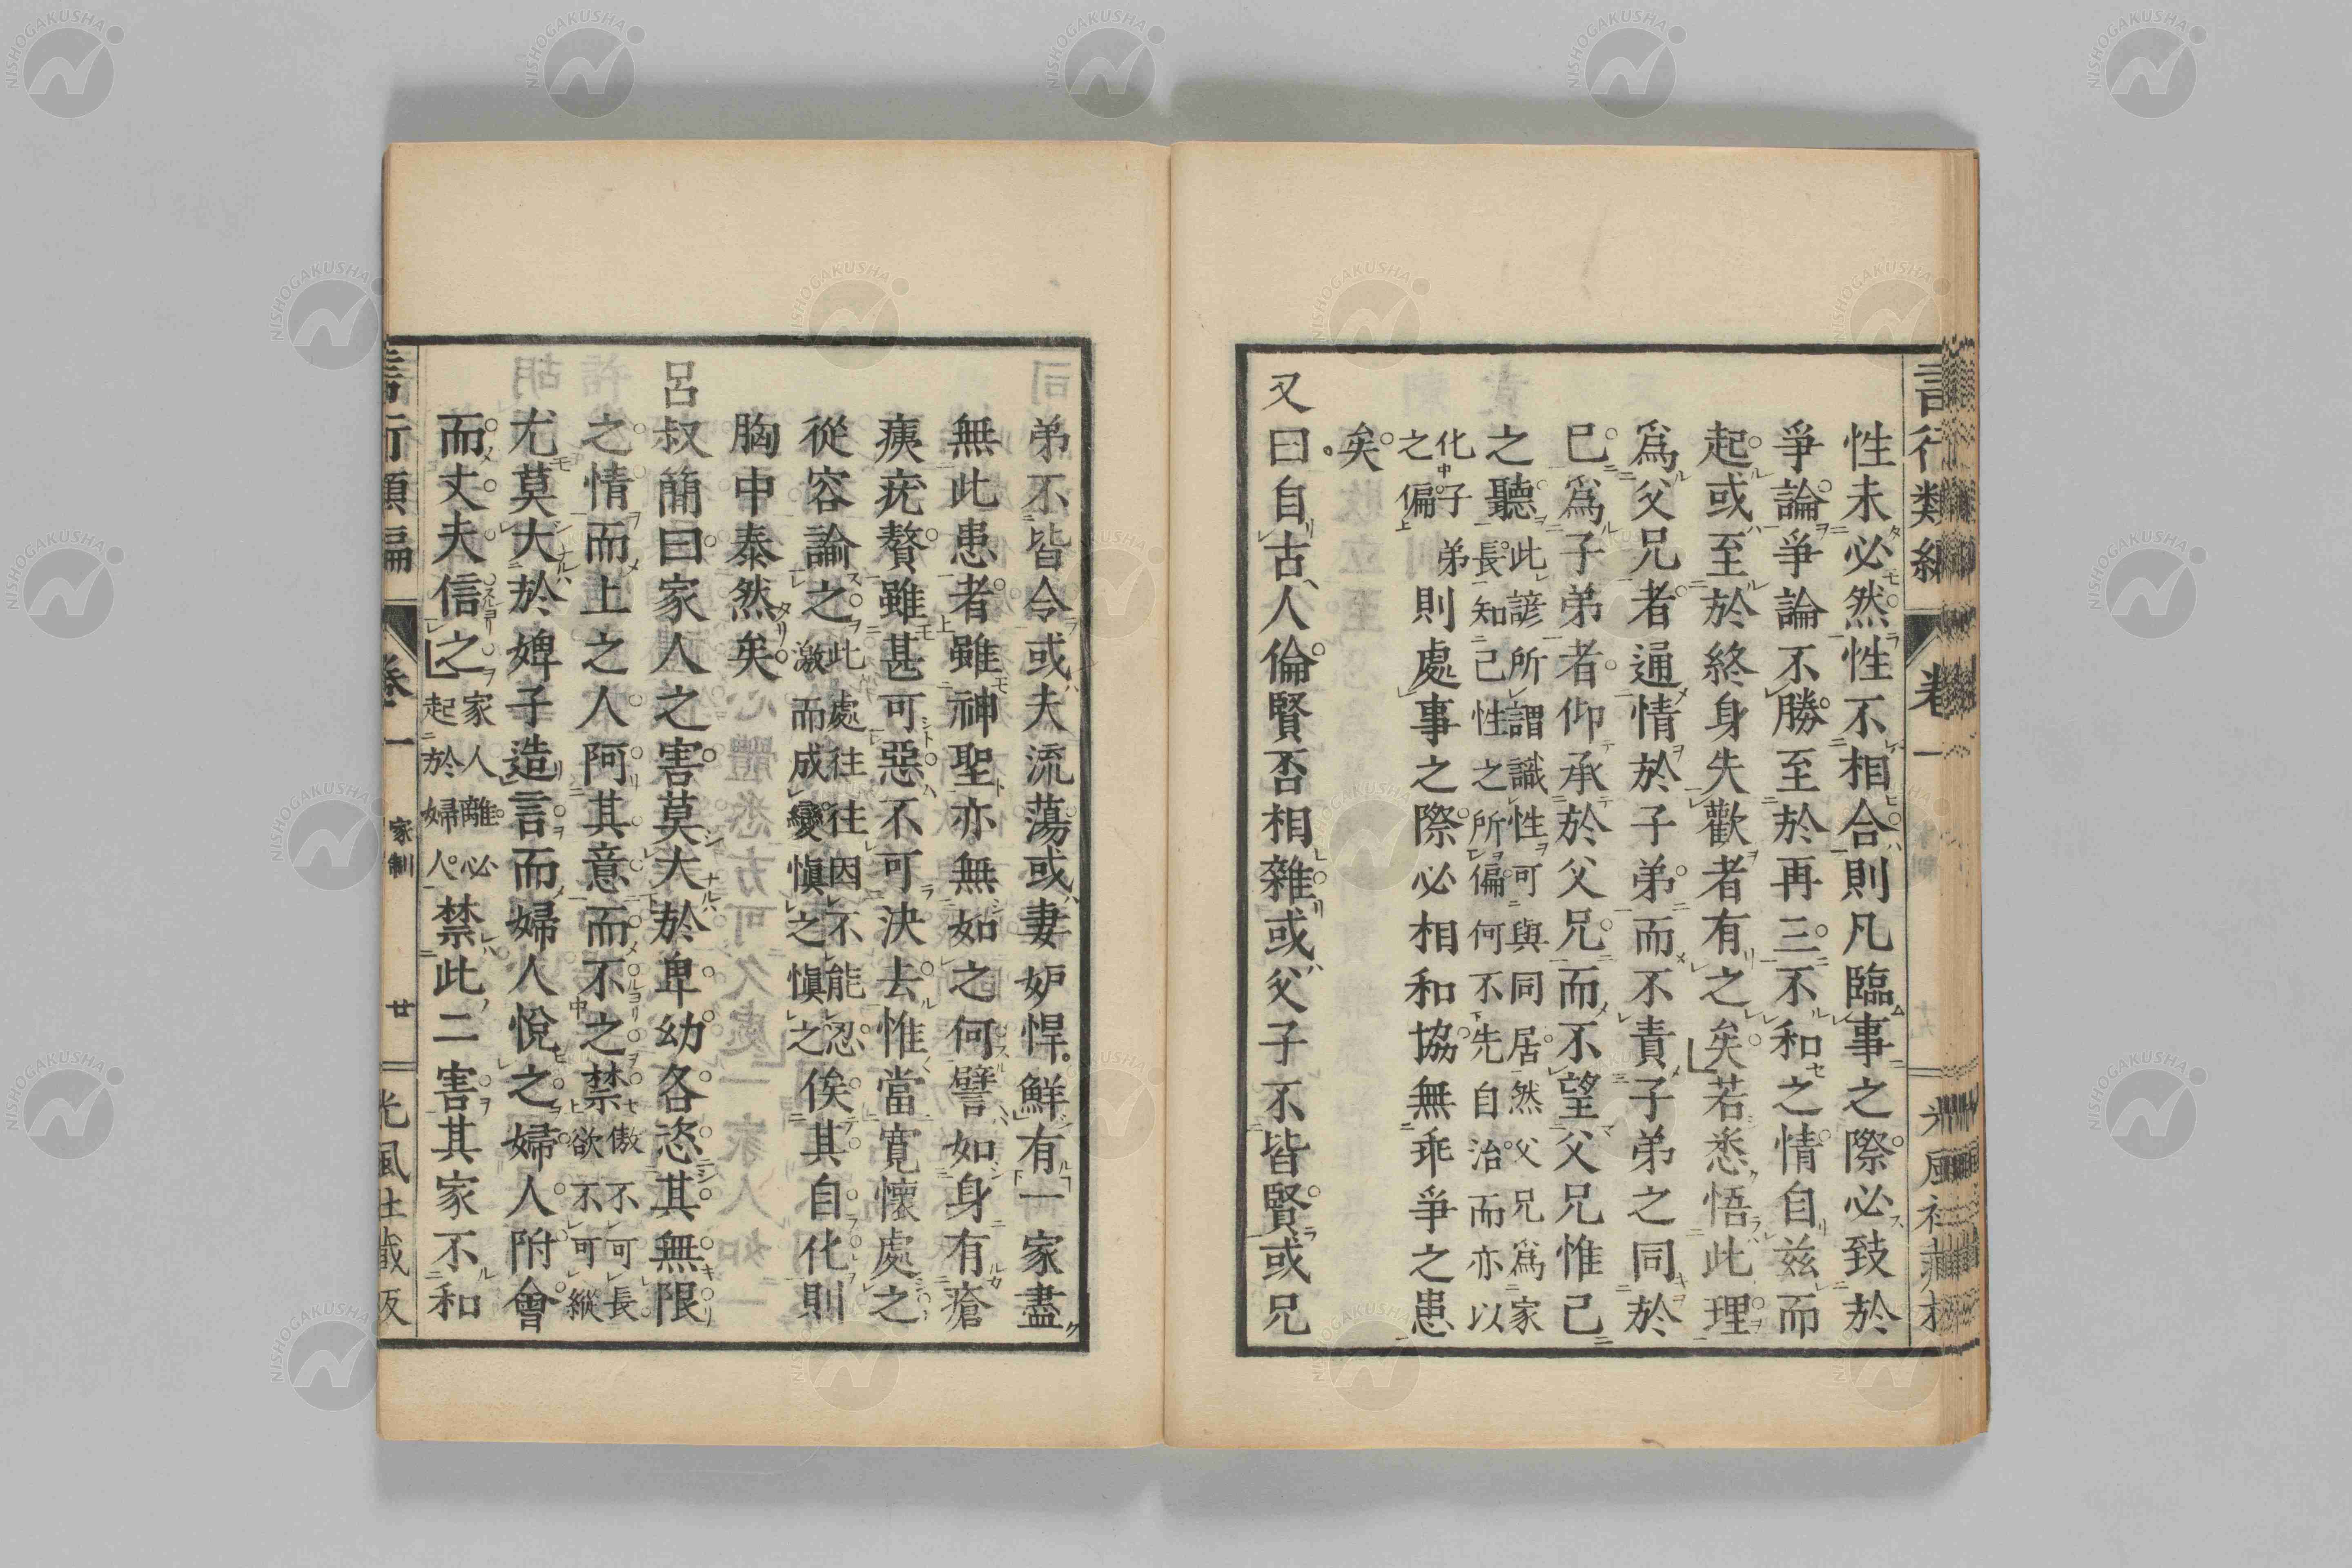 性未必然性不相合則凡臨事之際必致於
爭論爭論不勝至於再三不和之情自茲而
起或至於終身失歡者有之矣若悉悟此理
爲父兄者通情於子弟而不責子弟之同於
已爲子弟者仰承於父兄而不望父兄惟己
之聽此諺所謂識性可與同居然父兄爲家
長知己性之所偏何不先自治而亦以
化子弟
之偏則處事之際必相和協無乖爭之患
矣
又曰自古人倫賢否相雜或父子不皆賢或兄
弟不皆令或夫流蕩或妻妒悍鮮有一家盡
無此患者雖神聖亦無如之何譬如身有瘡
痍疣贅雖甚可惡不可決去惟當寬懷處之
從容論之此處往往因不能忍
激而成變愼之愼之俟其自化則
胸中泰然矣
呂叔簡曰家人之害莫大於卑幼各恣其無限
之情而上之人阿其意而不之禁傲不可長
欲不可縱
尤莫大於婢子造言而婦人悅之婦人附會
而丈夫信之家人離必
起於婦人禁此二害其家不和
卷一
家制
廿
光風社藏板
卷一
NISHOGAKUSHA